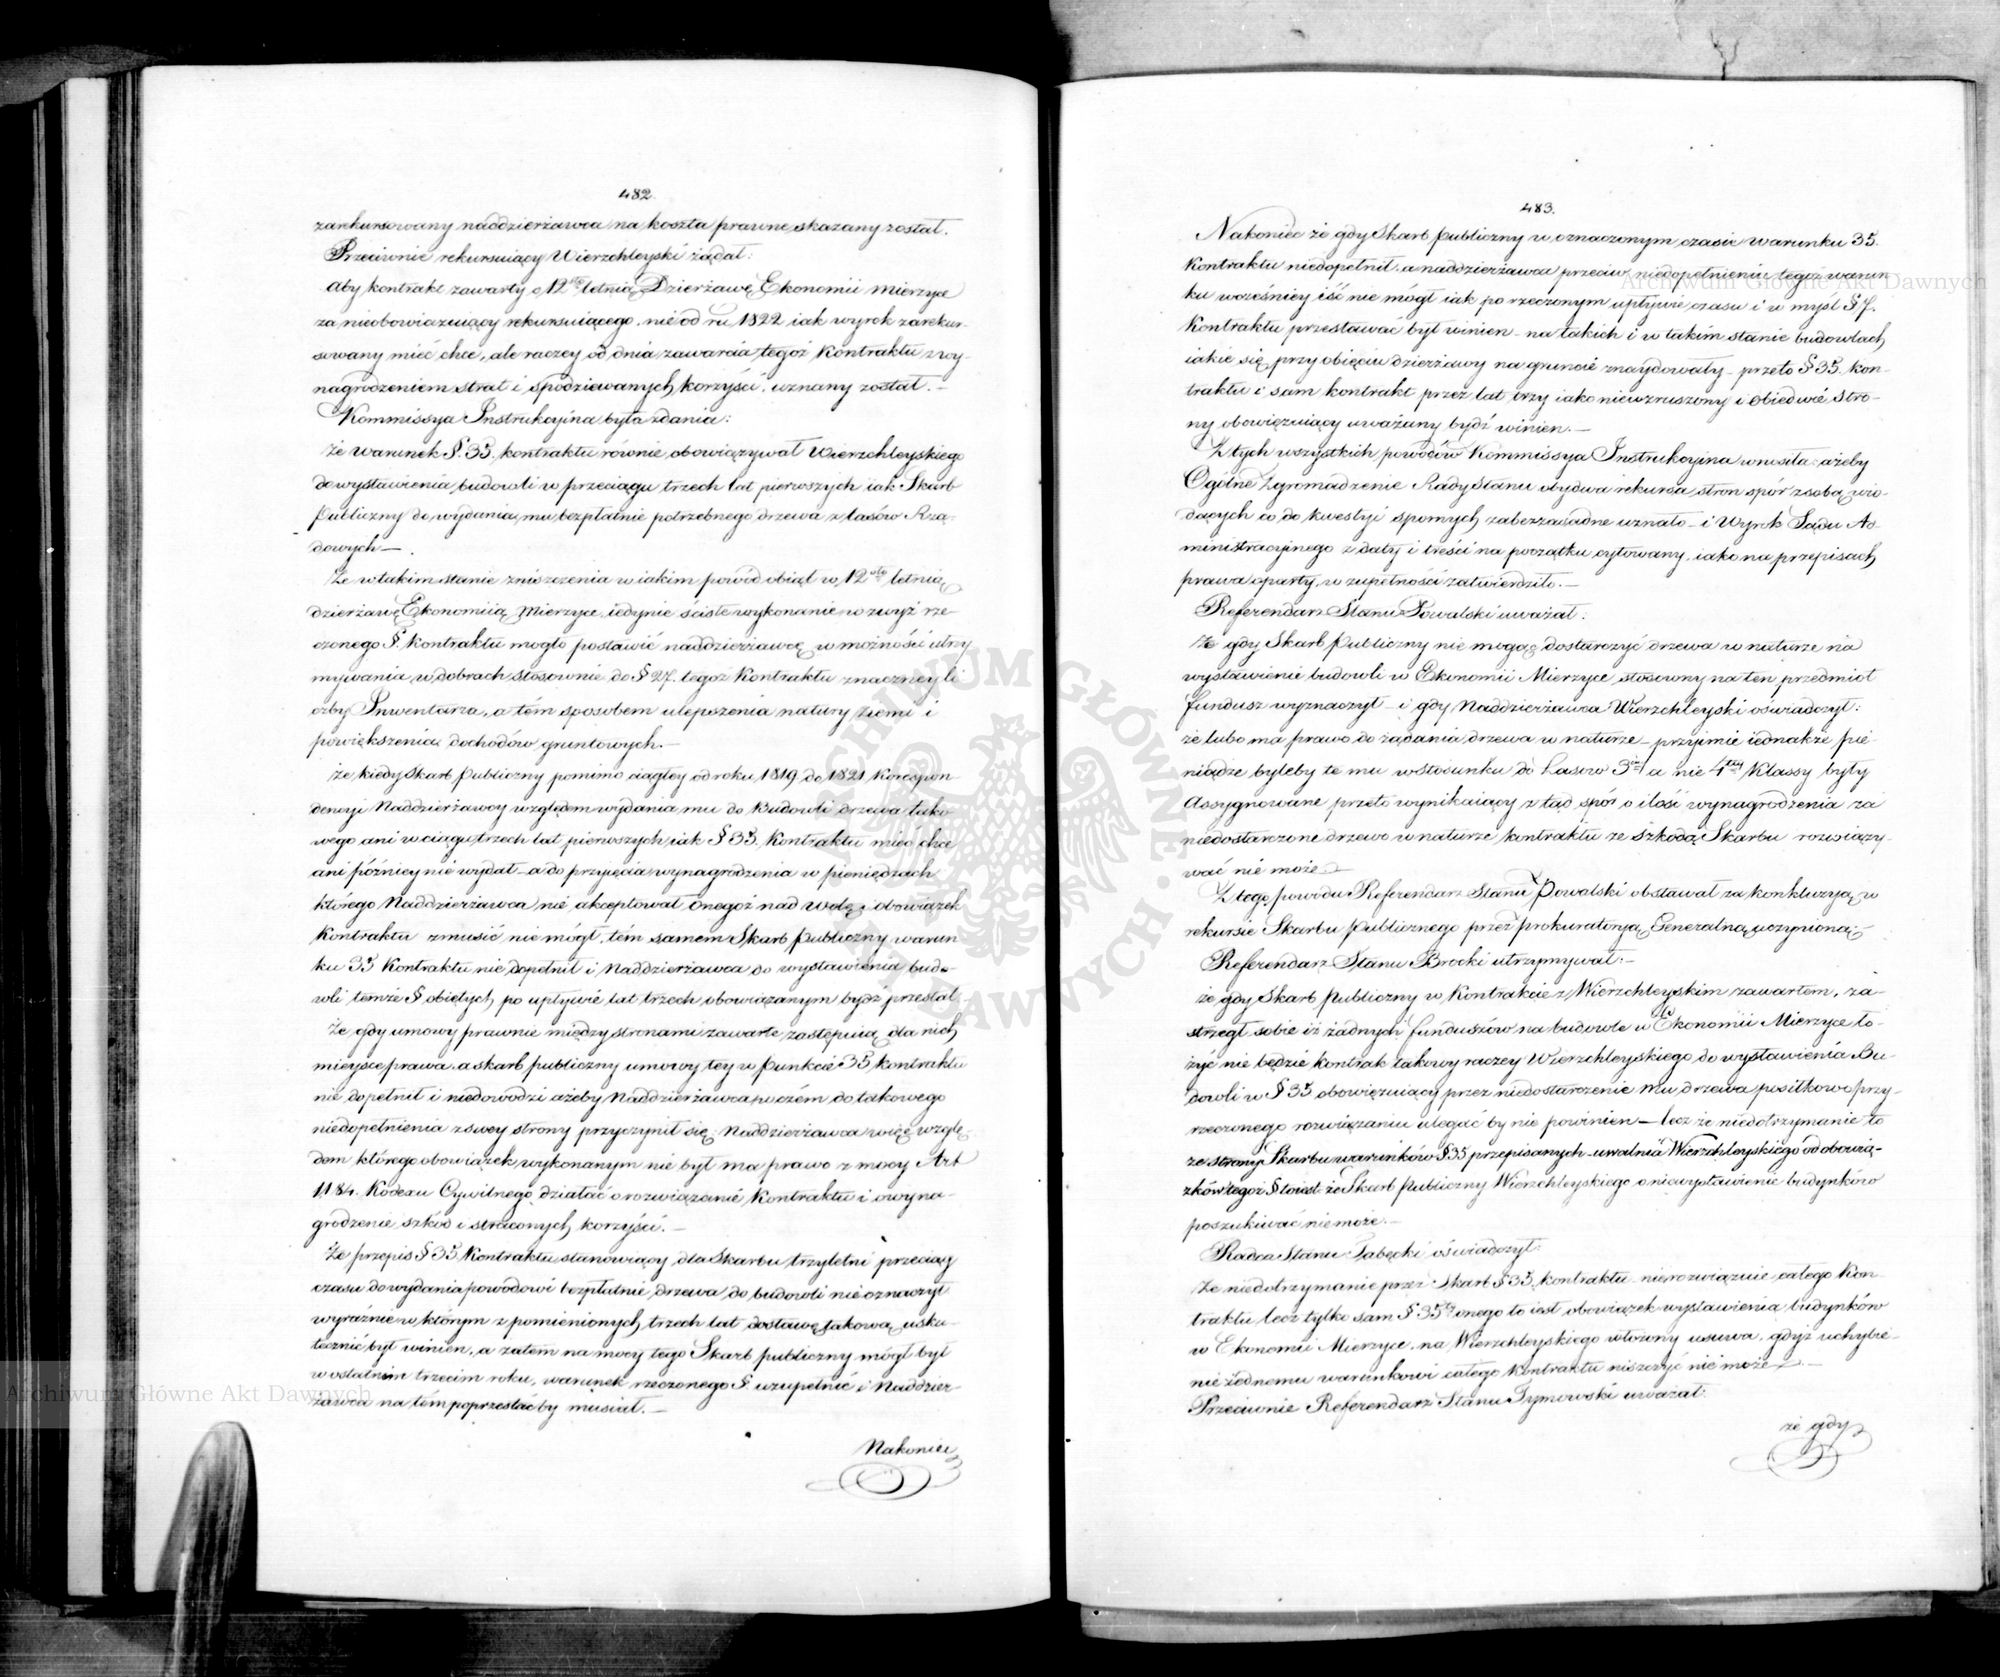 482.
zarekursowany naddzierżawca na koszta prawne skazany został.
Przeciwnie rekursuiący Wierzchleyski żądał:
aby kontrakt zawarty o 12sto letnią Dzierżawę Ekonomii Mierzyce
za nieobowiązuiący rekursuiącego, nie od ru 1822 iak wyrok zarekur-
sowany mieć chce, ale raczey od dnia zawarcia tegoż Kontraktu z wy-
nagrodzeniem strat i spodziewanych korzyści, uznany został. —
Kommissya Instrukcyina była zdania:
że warunek §. 35. kontraktu równie obowiązywał Wierzchleyskiego
do wystawienia budowli w przeciągu trzech lat pierwszych iak Skarb
Publiczny do wydania mu bezpłatnie potrzebnego drzewa z lasów Rzą-
dowych —.
Że w takim stanie zniszczenia w iakim powód obiął w 12sto letnią
dzierżawę Ekonomiią Mierzyce, iedynie ścisłe wykonanie w zwyż rze-
czonego §. Kontraktu mogło postawić naddzierżawcę w możności utrzy
mywania w dobrach stosownie do § 27. tegoż Kontraktu znaczney li
czby Inwentarza, a tém sposobem ulepszenia natury ziemi i
powiększenia dochodów gruntowych. —
że kiedy Skarb Publiczny pomimo ciągłey od roku 1819 do 1821 Korespon-
dencyi Naddzierżawcy względem wydania mu do Budowli drzewa tako
wego ani w ciągu trzech lat pierwszych iak § 35. Kontraktu mieć chce
ani późniey nie wydał – a do przyięcia wynagrodzenia w pieniędzach
którego Naddzierżawca nie akceptował onegoż nad wolę i obowiązek
Kontraktu zmusić nie mógł, tém samem Skarb Publiczny warun
ku 35 Kontraktu nie dopełnił i Naddzierżawca do wystawienia budo-
wli temże § obiętych po upływie lat trzech obowiązanym bydź przestał.
Że gdy umowy prawnie między stronami zawarte zastępuią dla nich
mieysce prawa, a skarb publiczny umowy tey w punkcie 35 kontraktu
nie dopełnił i niedowodzi ażeby Naddzierżawca w czém do takowego
niedopełnienia z swey strony przyczynił się, Naddzierżawca więc wzglę-
dem którego obowiązek wykonanym nie był ma prawo z mocy Art
1184. Kodexu Cywilnego działać o rozwiązanie Kontraktu i o wyna-
grodzenie szkód i straconych korzyści. —
Że przepis § 35 Kontraktu stanowiący dla Skarbu trzyletni przeciąg
czasu do wydania powodowi bezpłatnie drzewa do budowli nie oznaczył
wyraźnie w którym z pomienionych trzech lat dostawę takową usku-
tecznić był winien, a zatem na mocy tego Skarb publiczny mógł był
w ostatnim trzecim roku, warunek rzeczonego §. uzupełnić i Naddzier-
żawca na tém poprzestać by musiał. —
Nakoniec
483.
Nakoniec że gdy Skarb publiczny w oznaczonym czasie warunku 35.
Kontraktu niedopełnił, a naddzierżawca przeciw niedopełnieniu tegoż warun
ku wcześniey iść nie mógł iak po rzeczonym upływie czasu i w myśl § 7.
Kontraktu przestawać był winien – na takich i w takim stanie budowlach
iakie się przy obięciu dzierżawy na gruncie znaydowały – przeto § 35. kon-
traktu i sam kontrakt przez lat trzy iako niewzruszony i obiedwie stro-
ny obowięzuiący uważany bydź winien. —
Z tych wszystkich powodów Kommissya Instrukcyina wnosiła: ażeby
Ogólne Zgromadzenie Rady Stanu obydwa rekursa stron spór z sobą wio-
dących co do kwestyi spornych za bezzasadne uznało – i Wyrok Sądu Ad-
ministracyinego z daty i treści na początku cytowany, iako na przepisach
prawa oparty, w zupełności zatwierdziło. —
Referendarz Stanu Powalski uważał:
że gdy Skarb Publiczny nie mogąc dostarczyć drzewa w naturze na
wystawienie budowli w Ekonomii Mierzyce, stosowny na ten przedmiot
fundusz wyznaczył – i gdy Naddzierżawca Wierzchleyski oświadczył:
że lubo ma prawo do żądania drzewa w naturze – przyimie iednakże pie-
niądze byleby te mu w stosunku do Lasów 3ciey a nie 4tey Klassy były
Assygnowane przeto wynikaiący z tąd spór o ilość wynagrodzenia za
niedostarczone drzewo w naturze kontraktu ze szkodą Skarbu rozwiązy-
wać nie może. —
Z tego powodu Referendarz Stanu Powalski obstawał za konkluzyą w
rekursie Skarbu Publicznego przez Prokuratoryą Generalną uczynioną. —
Referendarz Stanu Brocki utrzymywał: —
że gdy Skarb Publiczny w Kontrakcie z Wierzchleyskim zawartem, za-
strzegł sobie iż żadnych funduszów na budowle w Ekonomii Mierzyce ło-
żyć nie będzie kontrak takowy raczey Wierzchleyskiego do wystawienia Bu-
dowli w § 35 obowięzuiący przez niedostarczenie mu drzewa posiłkowo przy-
rzeczonego rozwiązaniu ulegać by nie powinien – lecz że niedotrzymanie to
ze strony Skarbu warunków § 35 przepisanych – uwalnia Wierzchleyskiego od obowią-
zków tegoż § to iest: że Skarb Publiczny Wierzchleyskiego o niewystawienie budynków
poszukiwać nie może. —
Radca Stanu Tabęcki oświadczył:
że niedotrzymanie przez Skarb § 35. kontraktu nierozwiązuie całego Kon-
traktu lecz tylko sam § 35ty onego to iest obowiązek wystawienia budynków
w Ekonomii Mierzyce, na Wierzchleyskiego włożony usuwa, gdyż uchybie-
nie iednemu warunkowi całego Kontraktu niszczyć nie może. —
Przeciwnie Referendarz Stanu Tymowski uważał:
że gdy
Archiwum Główne Akt Dawnych
Archiwum Główne Akt Dawnych
ARCHIWUM GŁÓWNE AKT DAWNYCH